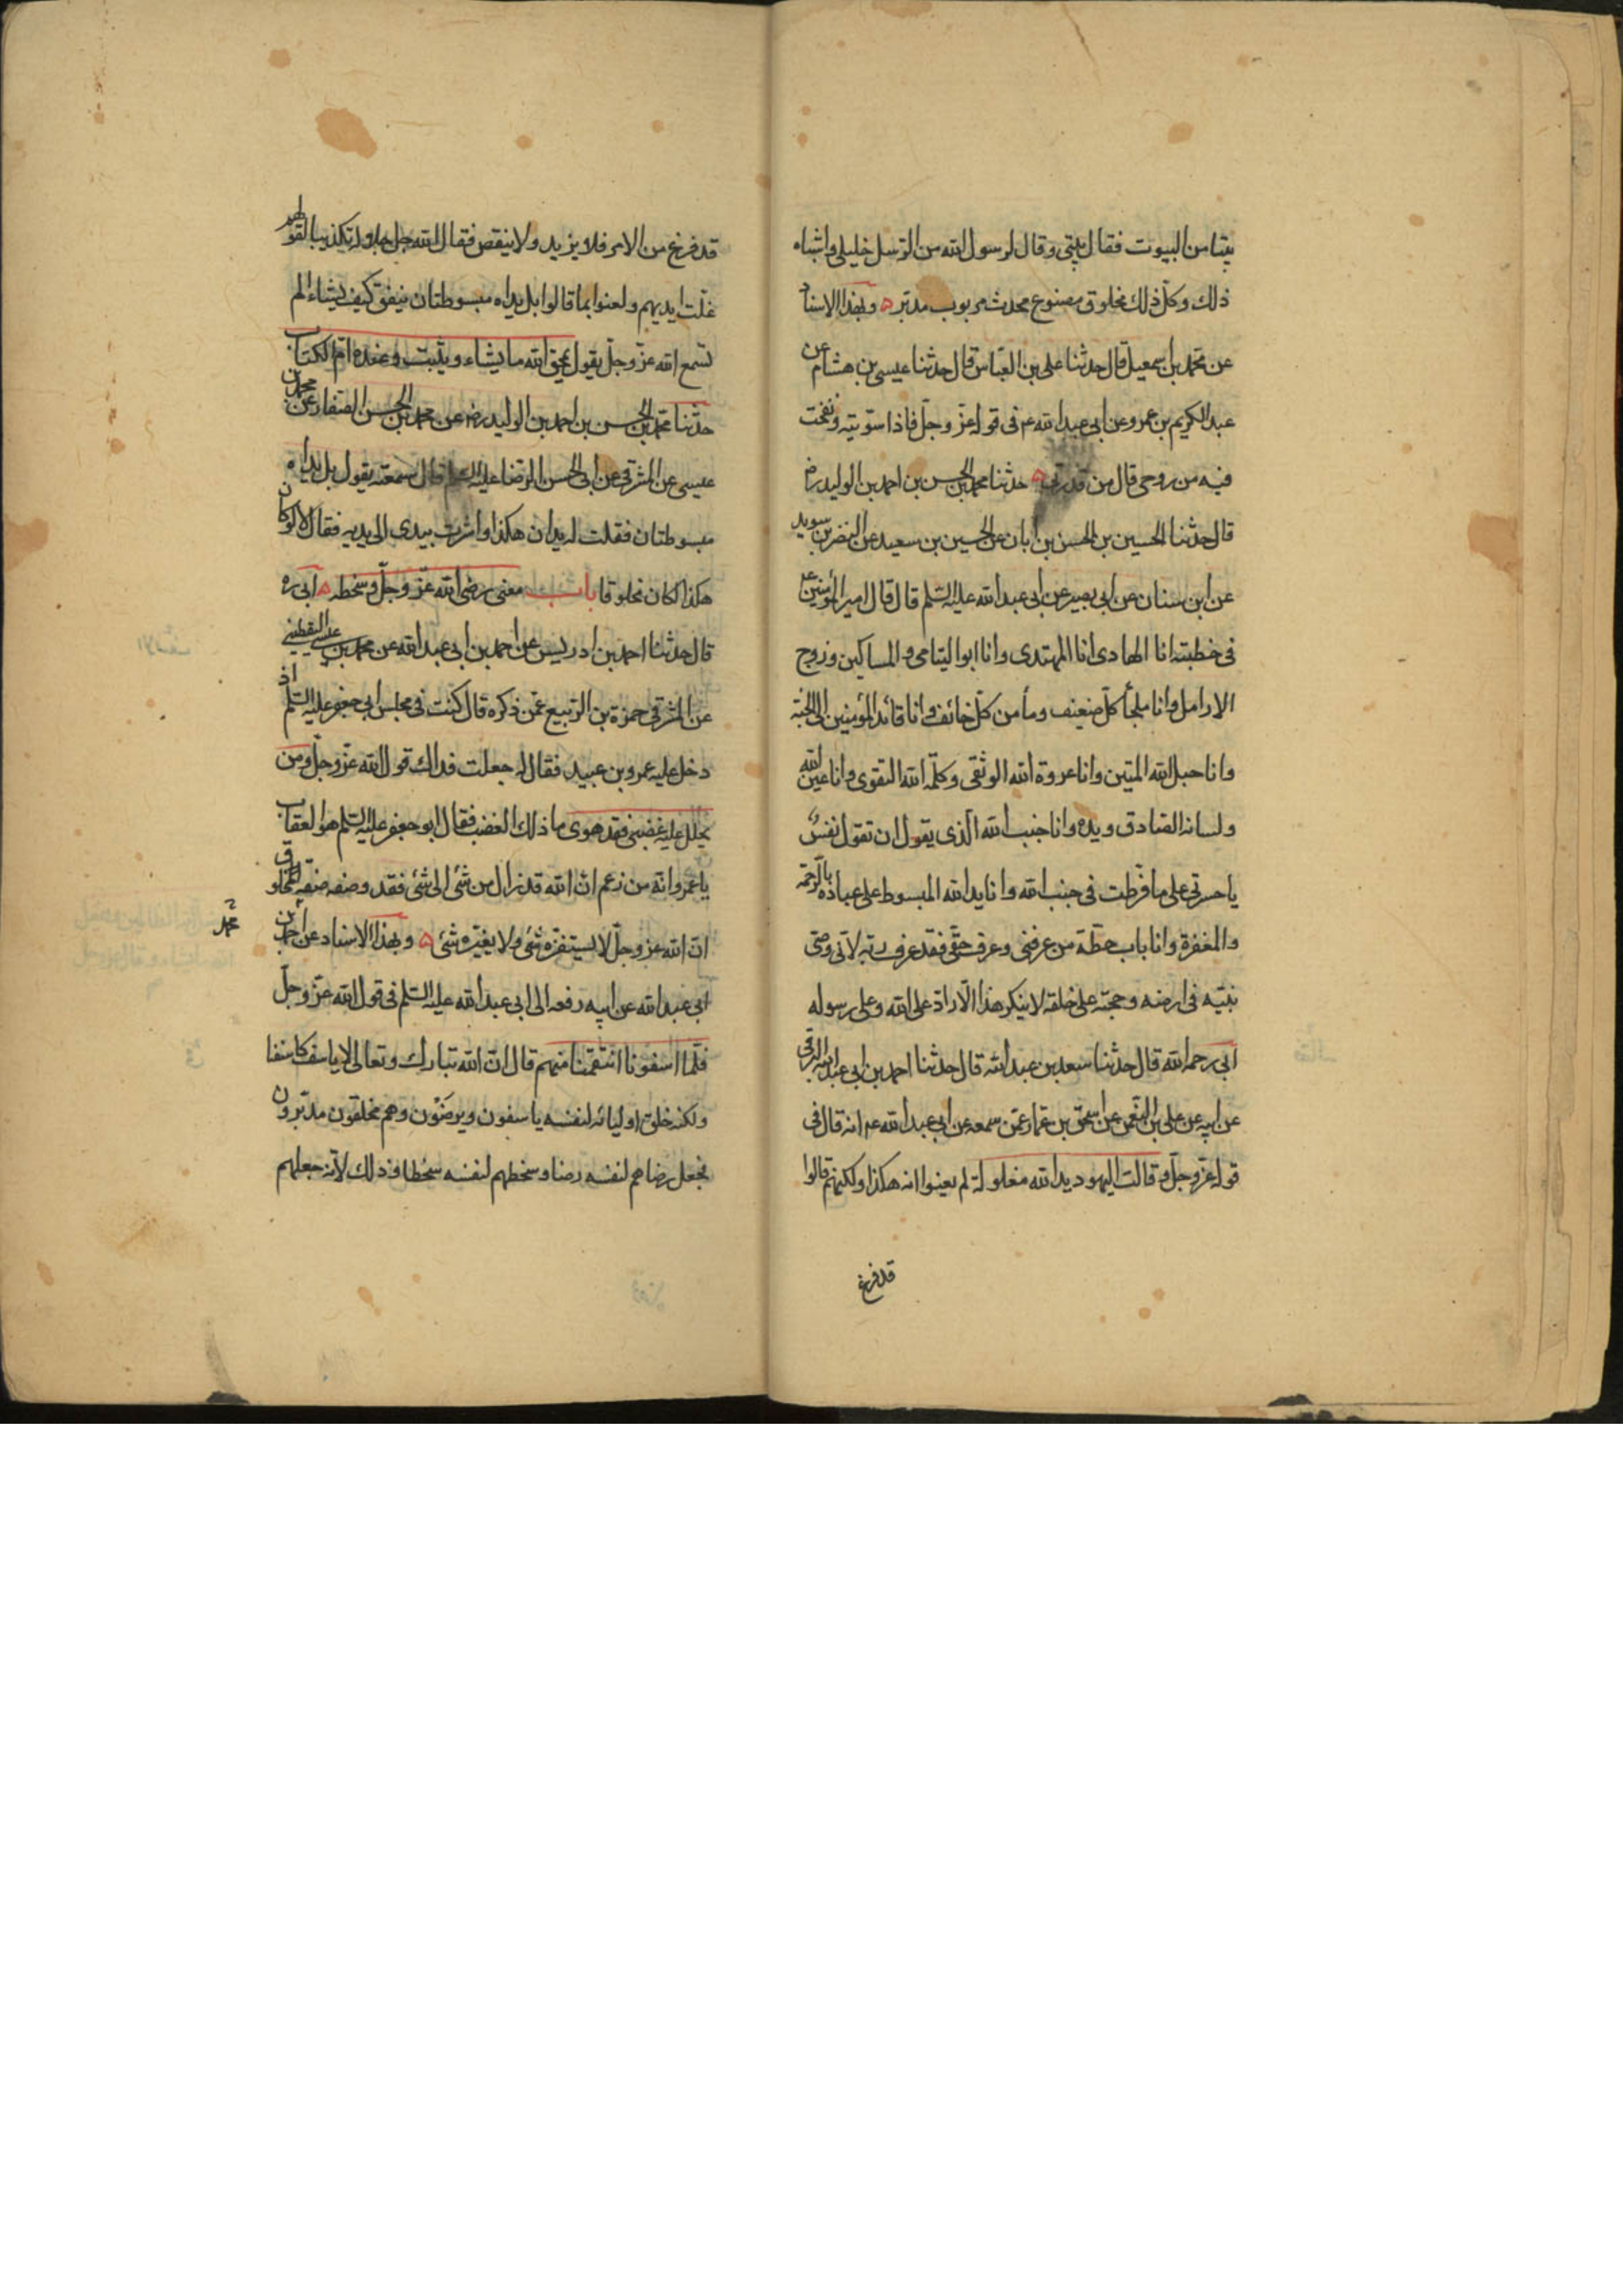 بيتا من البيوت فقال بيتي وقال لرسول الله من الرسل خليلي واشباه
ذلك وكل ذلك مخلوق مصنوع محدث مربوب مدبر ه وبهذا الاسناد
عن محمد بن اسمعيل قال حدثنا علي بن العباس قال حدثنا عيسى بن هشام عن
عبد الكريم بن عمرو عن ابي عبد الله عم في قوله عز وجل فاذا سويته ونفخت
فيه من روحي قال من قدرتي ه حدثنا محمد بن الحسن بن احمد بن الوليد رض
قال حدثنا الحسين بن الحسن بن ابان عن الحسين بن سعيد عن النضر بن سويد
عن ابن سنان عن ابي بصير عن ابي عبد الله عليه السلم قال قال امير المؤمنين ع
في خطبته انا الهادي انا المهتدي وانا ابو اليتامى والمساكين وزوج
الارامل وانا ملجأ كل ضعيف ومأمن كل خائف وانا قائد المؤمنين الى الجنة
وانا حبل الله المتين وانا عروة الله الوثقى وكلمة الله التقوى وانا عين الله
ولسانه الصادق ويده وانا جنب الله الذي يقول ان تقول نفس
يا حسرتي على ما فرطت في جنب الله وانا يد الله المبسوط على عباده بالرحمة
والمغفرة وانا باب حطة من عرفني وعرف حقي فقد عرف ربه لاني وصي
نبيه في ارضه وحجته على خلقه لا ينكر هذا الا راد على الله وعلى رسوله
ابي رحمه الله قال حدثنا سعد بن عبد الله قال حدثنا احمد بن ابي عبد الله البرقي
عن ابيه عن علي بن النعمن عن اسحق بن عمار عمن سمعه عن ابي عبد الله عم انه قال في
قوله عز وجل وقالت اليهود يد الله مغلولة لم يعنوا انه هكذا ولكنهم قالوا
قد فرغ
قد فرغ من الامر فلا يزيد ولا ينقص فقال الله جل جلاله تكذيبا لقولهم
غلت ايديهم ولعنوا بما قالوا بل يداه مبسوطتان ينفق كيف يشاء الم
تسمع الله عز وجل يقول يمحق الله ما يشاء ويثبت وعنده ام الكتاب
حدثنا محمد بن الحسن بن احمد بن الوليد رض عن محمد بن الحسن الصفار عن محمد بن
عيسى عن المشرقي عن ابي الحسن الرضا عليه السلم قال سمعته يقول بل يداه
مبسوطتان فقلت له يدان هكذا واشرت بيدي الى يديه فقال لا لو كان
هكذا لكان مخلوقا باب معنى رضى الله عز وجل وسخطه ه ابي ره
قال حدثنا احمد بن ادريس عن احمد بن ابي عبد الله عن محمد بن عيسى اليقطيني
عن المشرقي حمزة بن الربيع عمن ذكره قال كنت في مجلس ابي جعفر عليه السلم اذ
دخل عليه عمرو بن عبيد فقال له جعلت فداك قول الله عز وجل ومن
يحلل عليه غضبي فقد هوى ما ذلك الغضب فقال ابو جعفر عليه السلم هو العقاب
يا عمرو انه من زعم ان الله قد زال من شئ الى شئ فقد وصفه صفة المخلوق
ان الله عز وجل لا يستفزه شئ ولا يغيره شئ ه وبهذا الاسناد عن احمد بن
محمد
ابي عبد الله عن ابيه رفعه الى ابي عبد الله عليه السلم في قول الله عز وجل
فلما اسفونا انتقمنا منهم قال ان الله تبارك وتعالى لا ياسف كاسفنا
ولكنه خلق اوليائه لنفسه ياسفون ويرضون وهم مخلقون مدبرون
فجعل رضاهم لنفسه رضا وسخطهم لنفسه سخطا وذلك لانه جعلهم